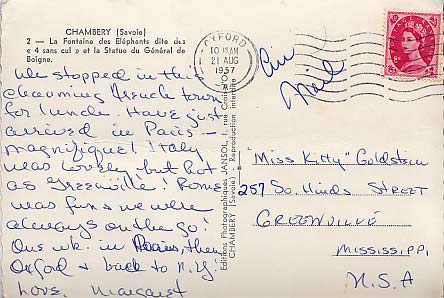 CHAMBERY (Savoie)
2 — La Fontaine des Eléphants dite des
4 sans cul et la Statue du Général de
Boigne.
We stopped in this
charming French town
for lunch. Have just
arrived in Paris —
magnifique! Italy
was lovely but hot
as Greenville! Rome
was fun & we were
always on the go!
One wk. in Paris, then
Oxford & back to N.Y.
Love, Margaret
Editions Photographiques JANSOL, 1, rue
CHAMBERY (Savoie) - Reproduction interdite
OXFORD
10 15 AM
21 AUG
1957
Air
Mail
"Miss Kitty" Goldstein
257 So. Hinds STREET
GREENVILLE
MISSISSIPPI,
U.S.A